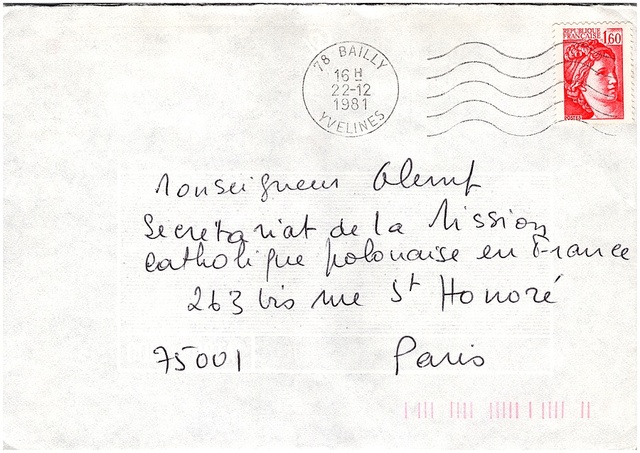 78 BAILLY
16 H
22-12
1981
YVELINES
REPUBLIQUE
FRANÇAISE 1,60
Monseigneur
Secrétariat de la Mission
catholique polonaise en France
263 bis rue St Honoré
75001 Paris